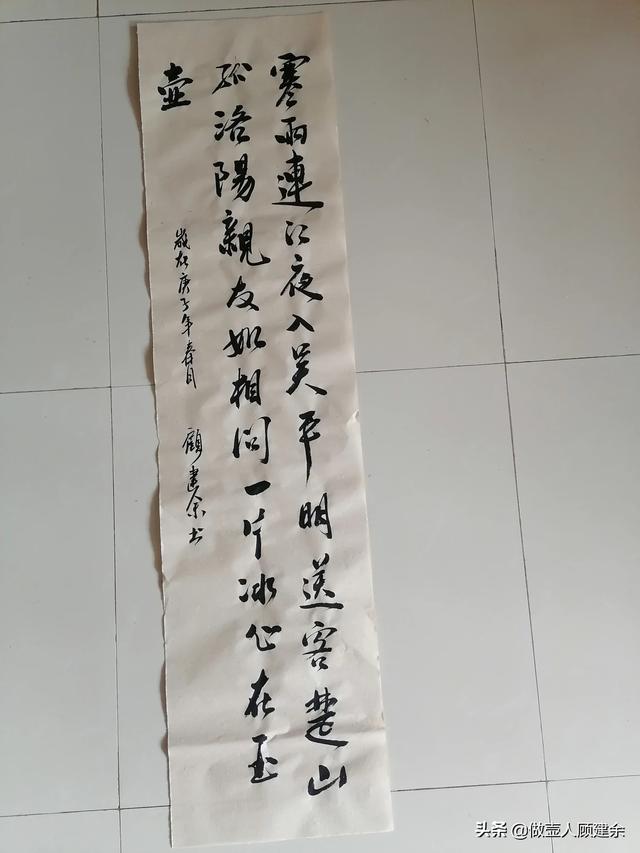 寒雨連江夜入吴平明送客楚山
孤洛陽親友如相问一片冰心在玉
壶
歲在庚子年春月
顧建余书
头条 @做壶人顾建余